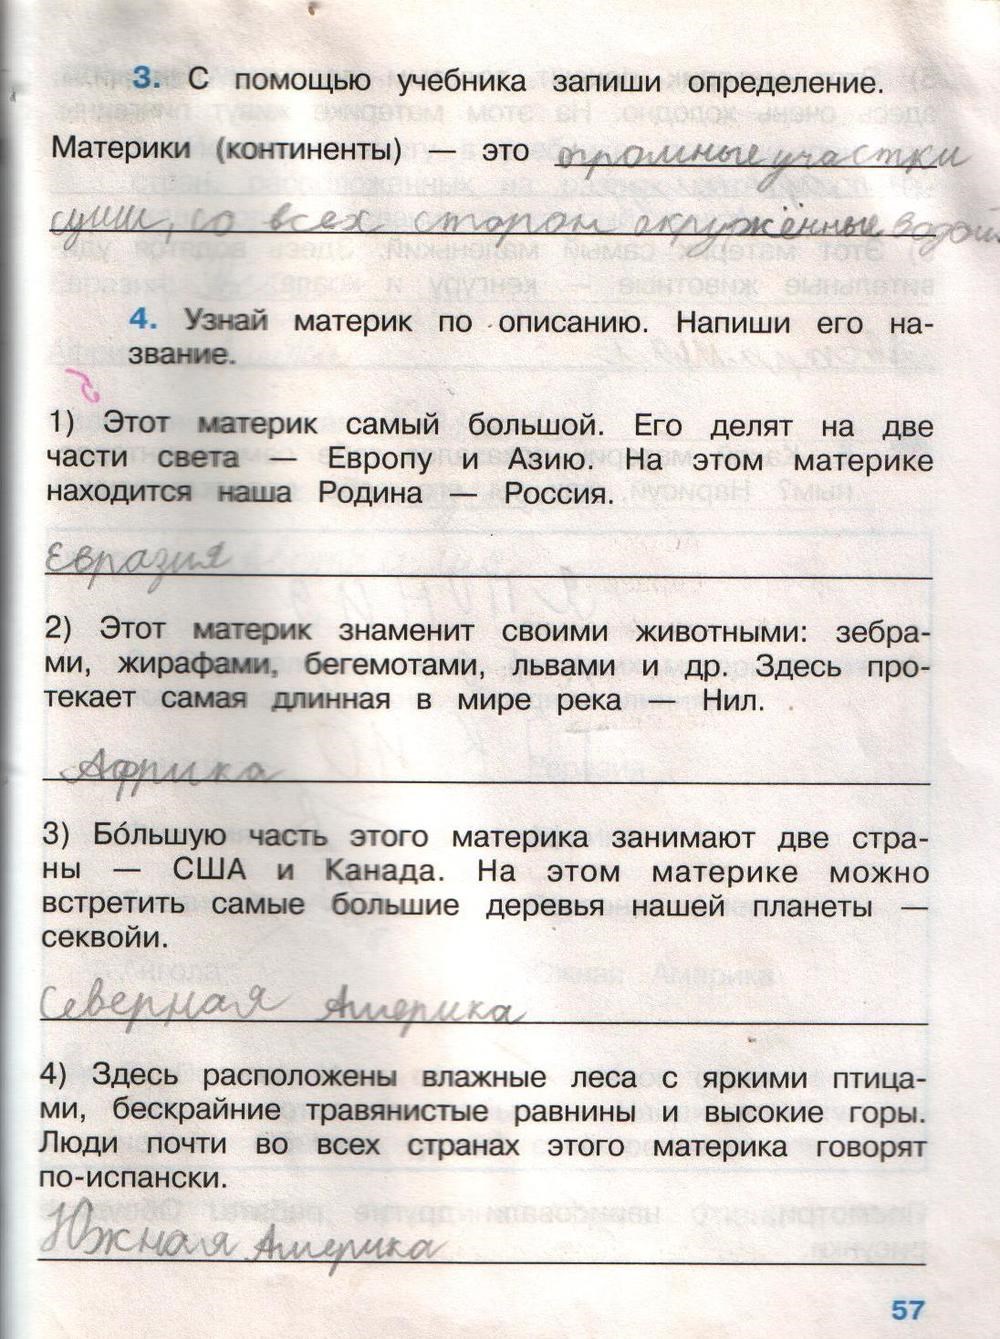 3. С помощью учебника запиши определение.
Материки (континенты) — это огромные участки
суши, со всех сторон окружённые водой.
4. Узнай материк по описанию. Напиши его на-
звание.
1) Этот материк самый большой. Его делят на две
части света — Европу и Азию. На этом материке
находится наша Родина — Россия.
Евразия
2) Этот материк знаменит своими животными: зебра-
ми, жирафами, бегемотами, львами и др. Здесь про-
текает самая длинная в мире река — Нил.
Африка
3) Бо́льшую часть этого материка занимают две стра-
ны — США и Канада. На этом материке можно
встретить самые большие деревья нашей планеты —
секвойи.
Северная Америка
4) Здесь расположены влажные леса с яркими птица-
ми, бескрайние травянистые равнины и высокие горы.
Люди почти во всех странах этого материка говорят
по-испански.
Южная Америка
57